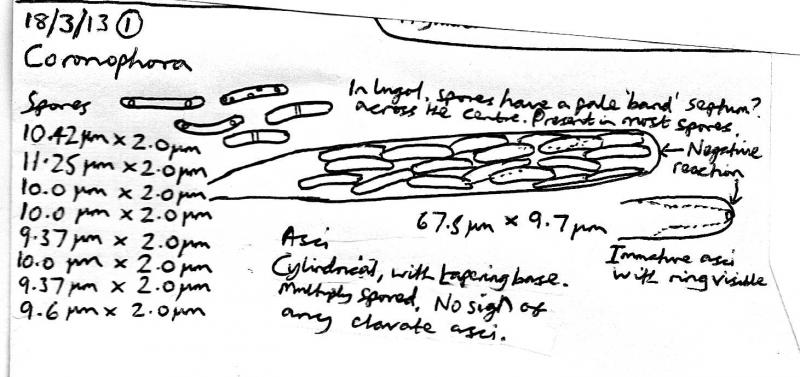 18/3/13 ①
Coronophora
In Lugol, spores have a pale 'band' septum?
across the centre. Present in most spores.
Spores
10.42µm x 2.0µm
11.25µm x 2.0µm
10.0µm x 2.0µm
10.0µm x 2.0µm
9.37µm x 2.0µm
10.0µm x 2.0µm
9.37µm x 2.0µm
9.6µm x 2.0µm
Negative
reaction
67.5µm x 9.7µm
Asci
Cylindrical, with tapering base.
Multiply spored. No sign of
any clavate asci.
Immature asci
with ring visible